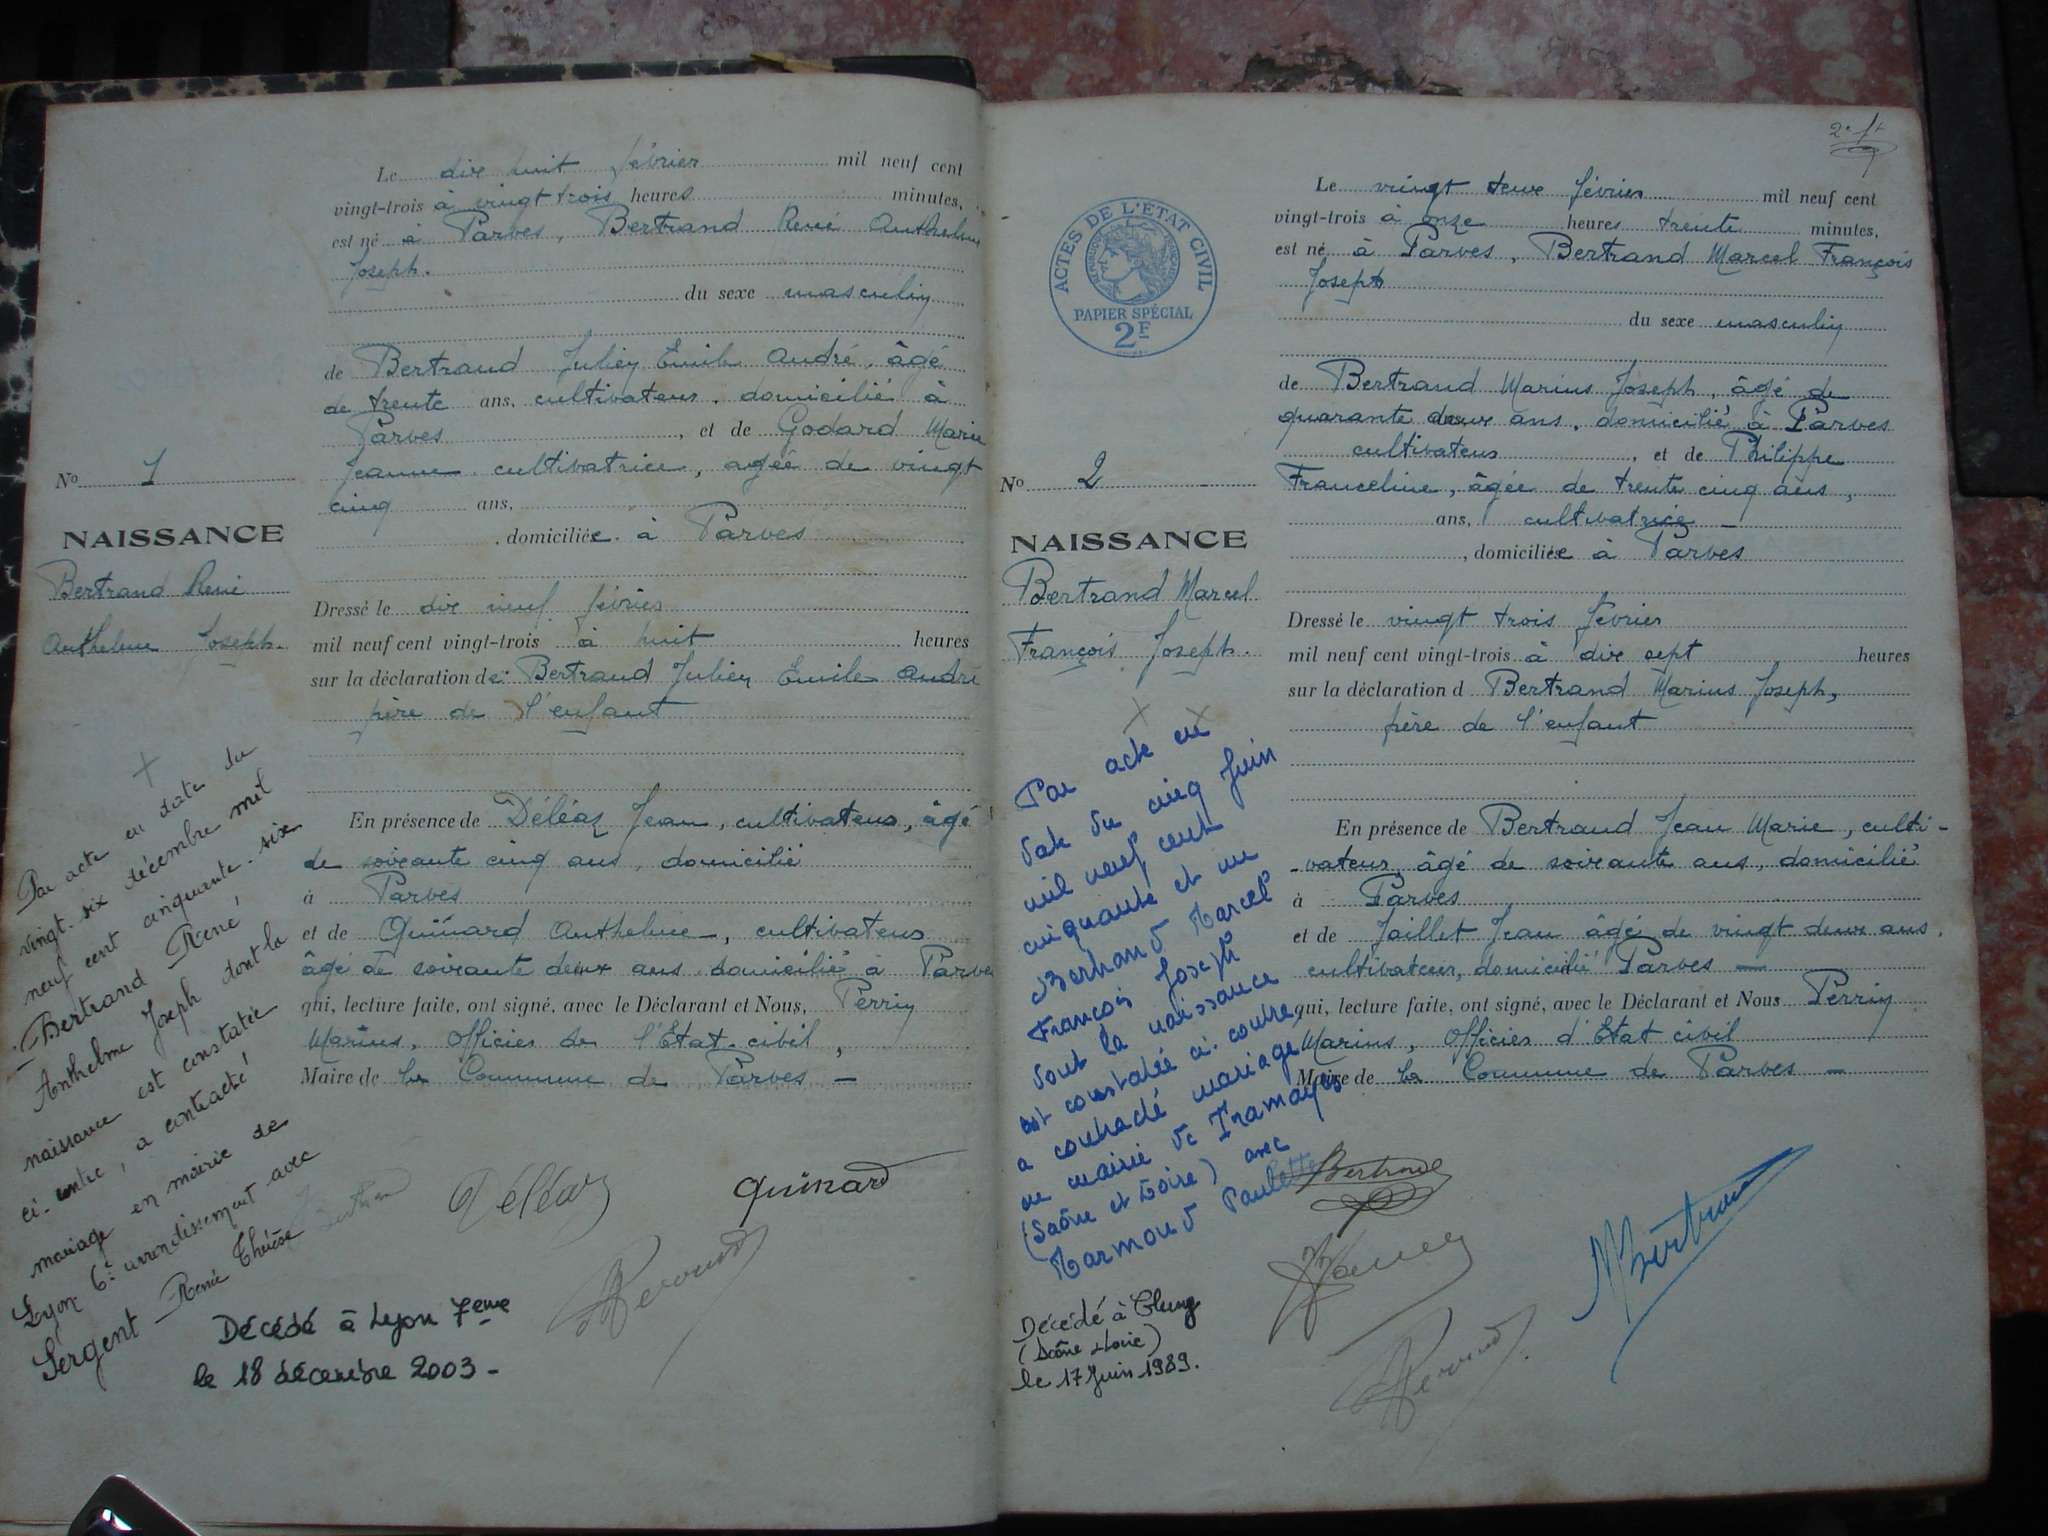 Le dix huit février mil neuf cent
vingt-trois à vingt trois heures minutes,
est né à Parves, Bertrand René Anthelme
Joseph.
du sexe masculin
de Bertrand Julien Emile André, âgé
de trente ans, cultivateur, domicilié à
Parves, et de Godard Marie
Jeanne cultivatrice, agée de vingt
cinq ans,
, domiciliée à Parves
Dressé le dix neuf février
mil neuf cent vingt-trois à huit heures
sur la déclaration de Bertrand Julien Emile André
père de l'enfant
En présence de Déléaz Jean, cultivateur, âgé
de soixante cinq ans, domicilié
à Parves
et de Quinard Anthelme, cultivateur
âgé de soixante deux ans domicilié à Parves
qui, lecture faite, ont signé, avec le Déclarant et Nous, Perrin
Marius, Officier de l'Etat-civil,
Maire de la Commune de Parves —
No 1
NAISSANCE
Bertrand René
Anthelme Joseph.
Par acte en date du
vingt-six décembre mil
neuf cent cinquante-six
Bertrand René
Anthelme Joseph dont la
naissance est constatée
ci-contre, a contracté
mariage en mairie de
Lyon 6e arrondissement avec
Sergent Renée Thérèse
Déléaz
Quinard
Décédé à Lyon 7eme
le 18 décembre 2003 -
2e ft
ACTES DE L'ETAT CIVIL
REPUBLIQUE FRANÇAISE
PAPIER SPÉCIAL
2F
Le vingt deux février mil neuf cent
vingt-trois à onze heures trente minutes,
est né à Parves, Bertrand Marcel François
Joseph
du sexe masculin
de Bertrand Marius Joseph, âgé de
quarante deux ans, domicilié à Parves
cultivateur, et de Philippe
Franceline, âgée de trente cinq ans,
ans, cultivatrice —
, domiciliée à Parves
Dressé le vingt trois février
mil neuf cent vingt-trois à dix sept heures
sur la déclaration d Bertrand Marius Joseph,
père de l'enfant
En présence de Bertrand Jean Marie, culti-
-vateur, âgé de soixante ans, domicilié
à Parves
et de Jaillet Jean âgé de vingt deux ans,
cultivateur, domicilié Parves —
qui, lecture faite, ont signé, avec le Déclarant et Nous Perrin
Marius, Officier d'Etat civil
Maire de la Commune de Parves —
No 2
NAISSANCE
Bertrand Marcel
François Joseph.
Par acte en
date du cinq Juin
mil neuf cent
cinquante et un
Bertrand Marcel
François Joseph
dont la naissance
est constatée ci-contre,
a contracté mariage
en mairie de Tramayes
(Saône et Loire) avec
Marmond Paulette
Bertrand
M Bertrand
Décédé à Cluny
(Saône & Loire)
le 17 Juin 1989.